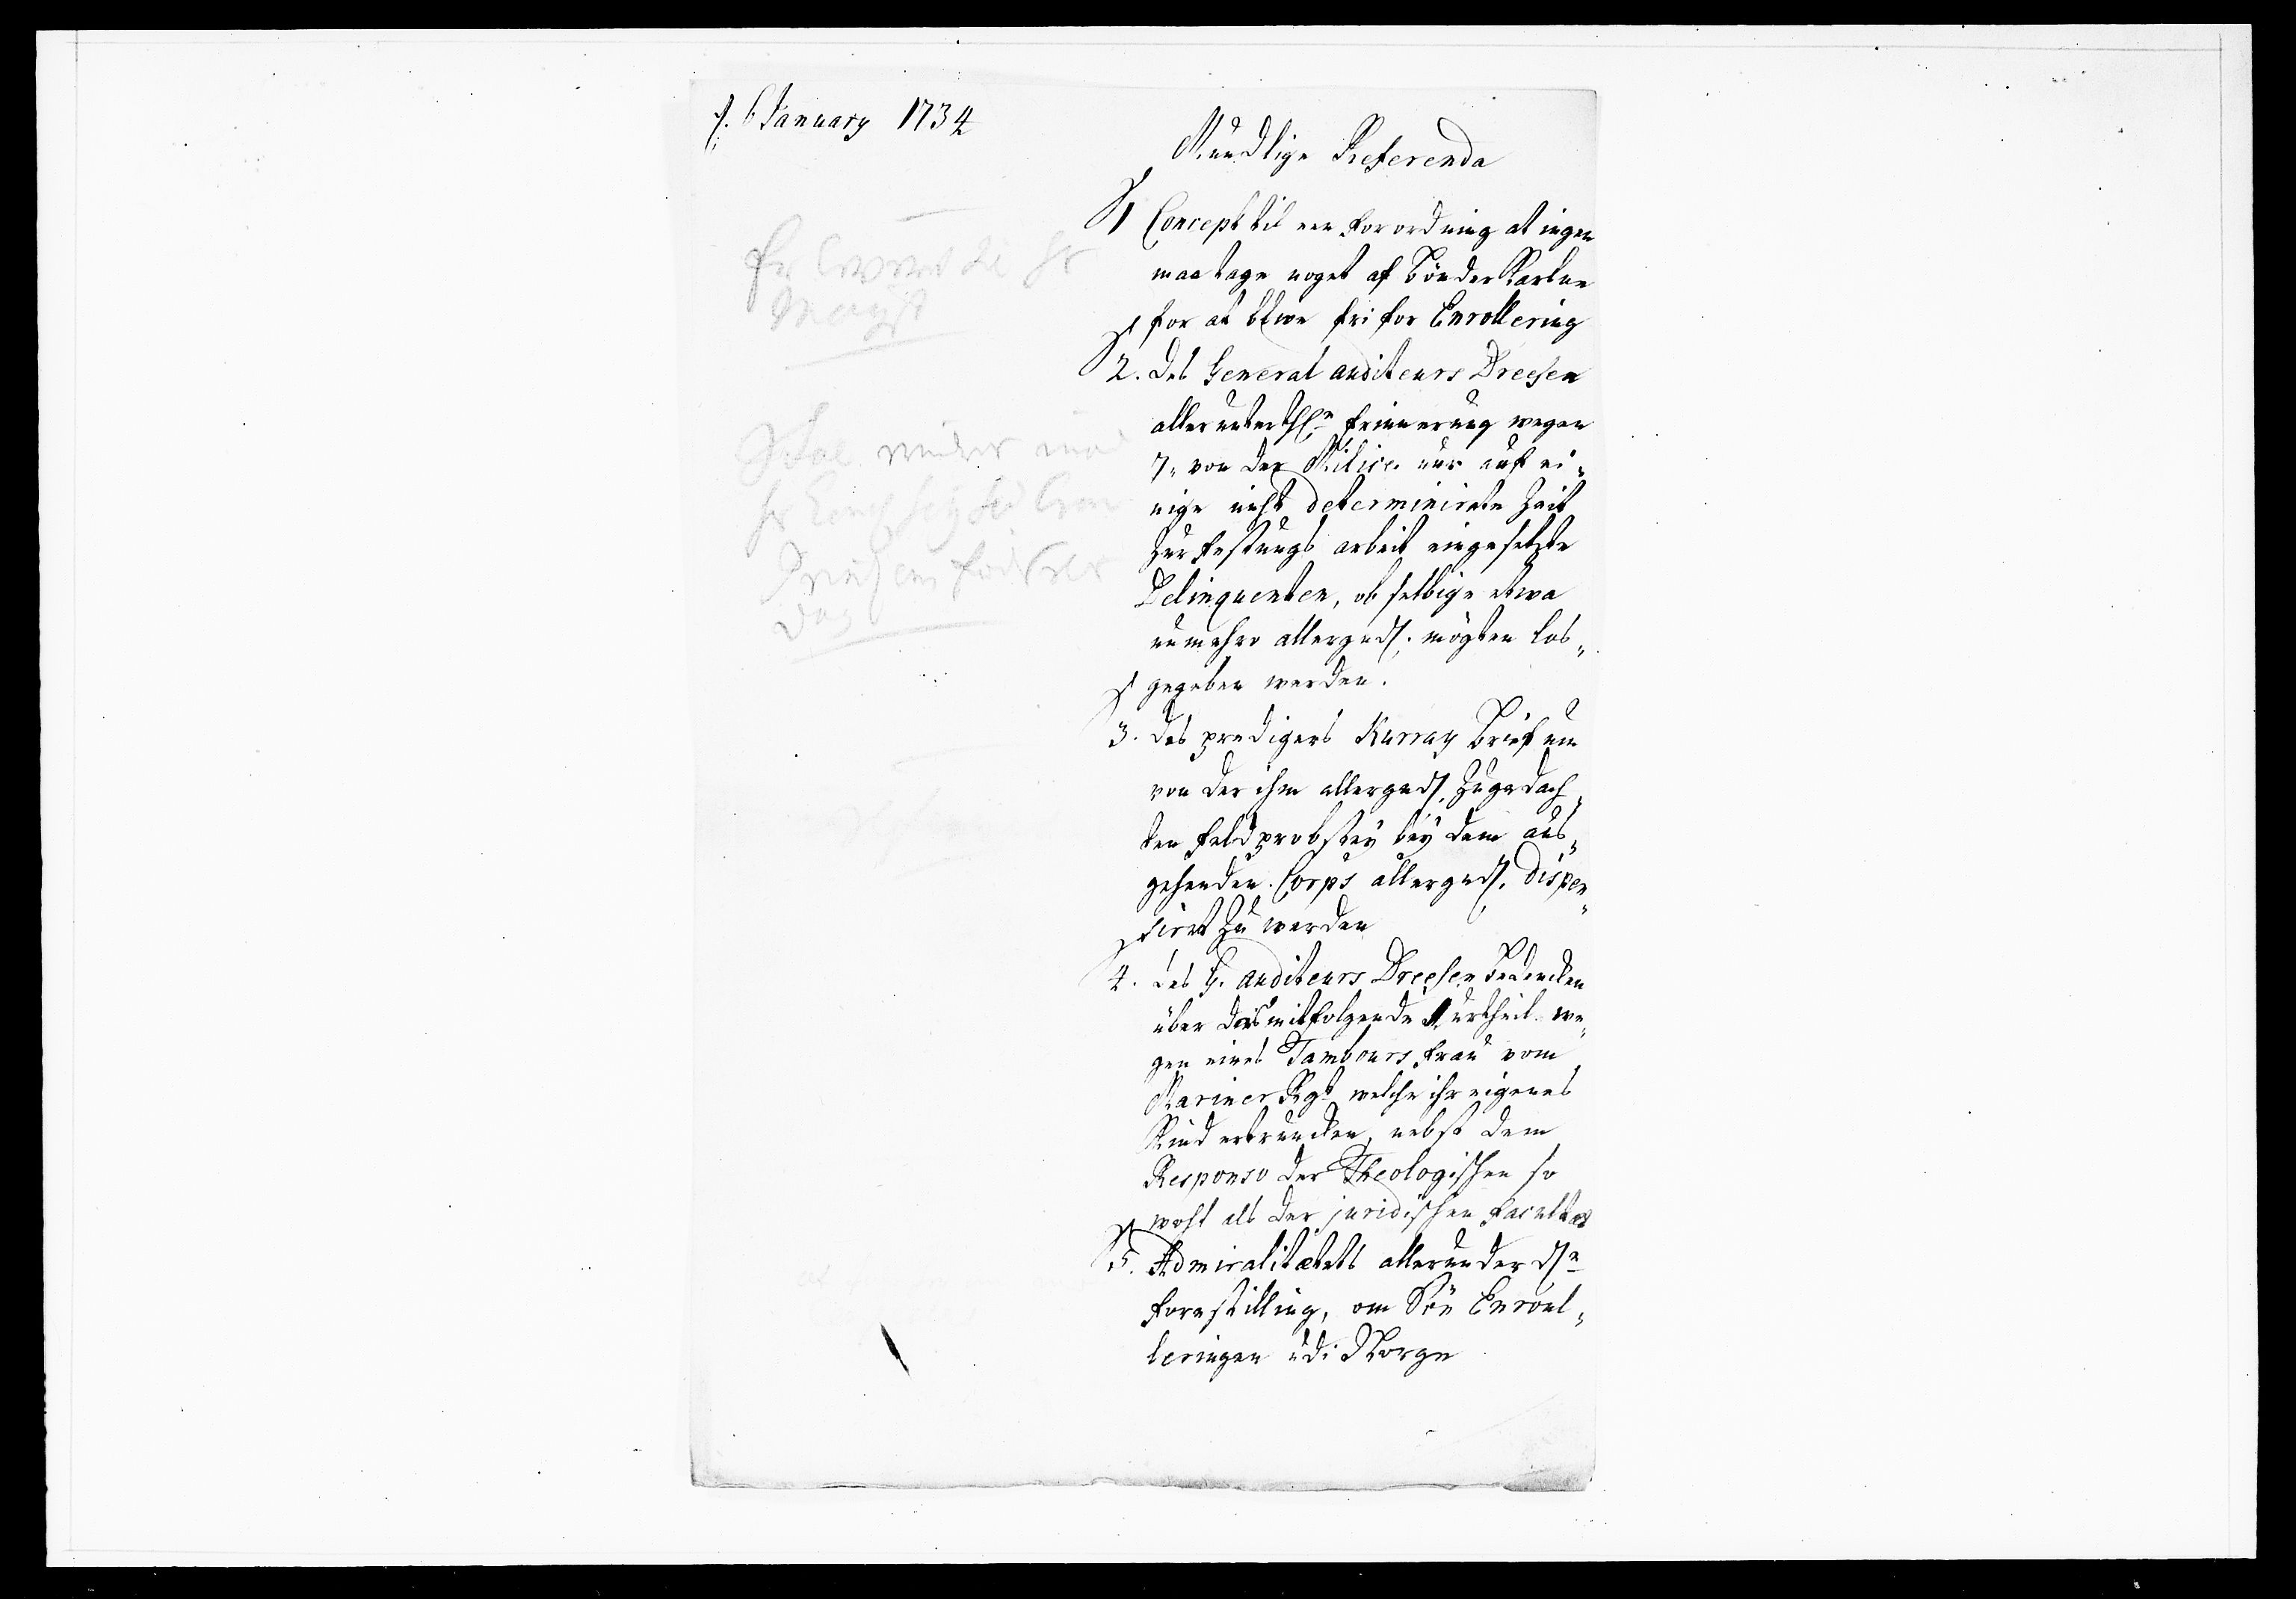 d. 6 January 1734
Mundlige Referenda
1 Concept til een forordning at ingen
maa tage noget af Bönder Karlene
for at blive fri for Enrollering
2. Des General auditeurs Dreesen
allerunterthgn Erinnerung wegen
7, von der Milice nur auf ei-
nige nicht determinirte Zeit
zur festungs arbeit eingesetzte
Delinquenten, ob selbige etwa
nunmehro allergndst. mögten los-
gegeben werden.
3. des predigers Murray Brief um
von der ihm allergndst. zugedach-
ten feldprobstey bey dem aus-
gehenden Corps allergndst. dispen-
siret zu werden
4. des G. auditeurs Dreesen Bedencken
über das mitfolgende urtheil we-
gen eines Tambours frau vom
Mariner Rgt welche ihr eigenes
Kind ertruncken, nebst dem
Responso der Theologischen so
wohl als der juridischen facultæt
5. Admiralitætets allerunderdste
forestilling, om Söe Enroul-
leringen udi Norge